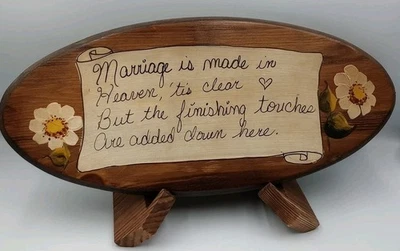 Marriage is made in
Heaven, 'tis clear ♡
But the finishing touches
Are added down here.